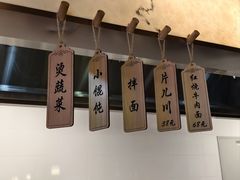 烫蔬菜
小馄饨
拌面
片儿川
38元
红烧牛肉面
68元